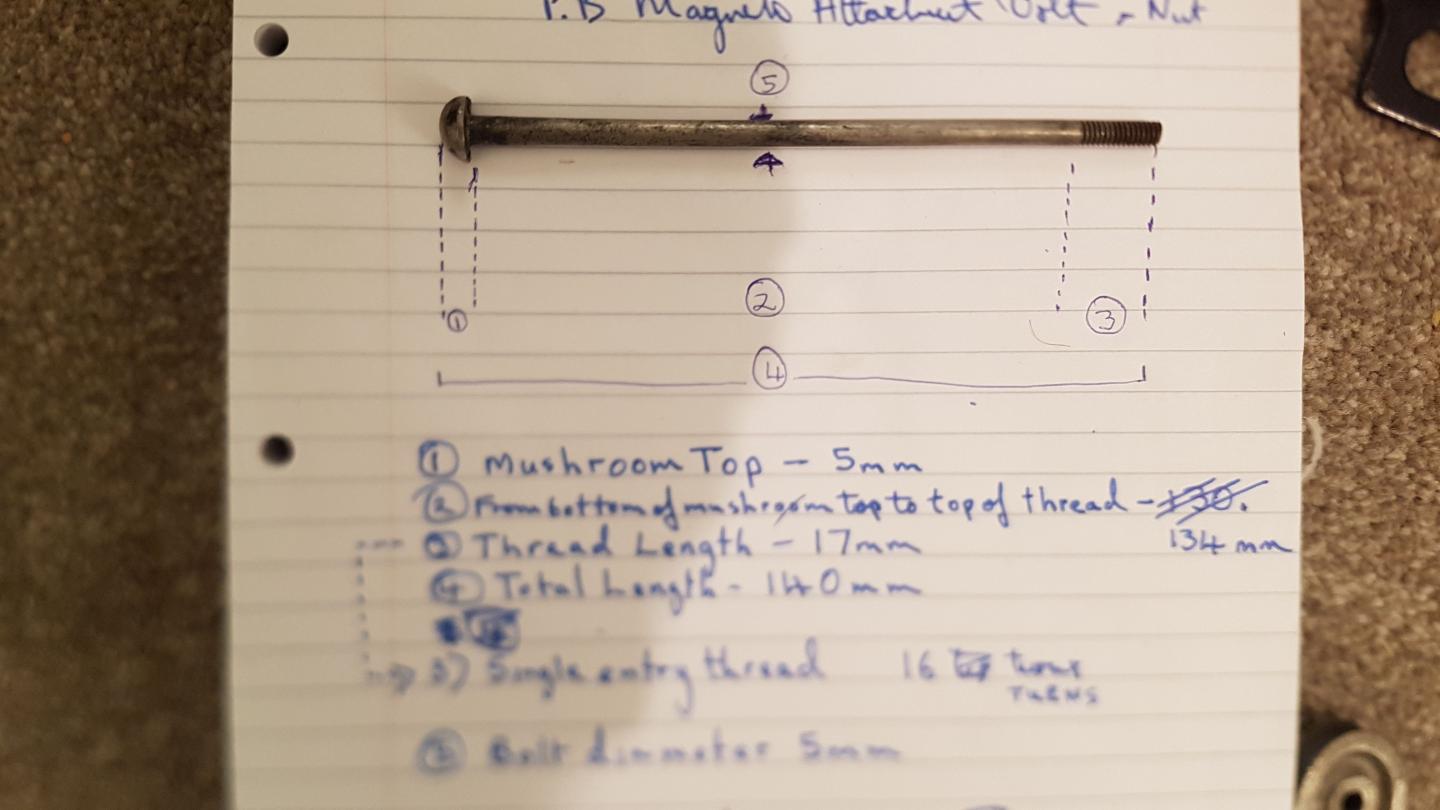 P.B Magneto Attachment Bolt + Nut
⑤
②
① ③
④
① Mushroom Top - 5mm
② From bottom of mushroom top to top of thread - 130.
134 mm
③ Thread Length - 17mm
④ Total Length - 140mm
3) Single entry thread 16 turns
TURNS
Bolt diammeter 5mm